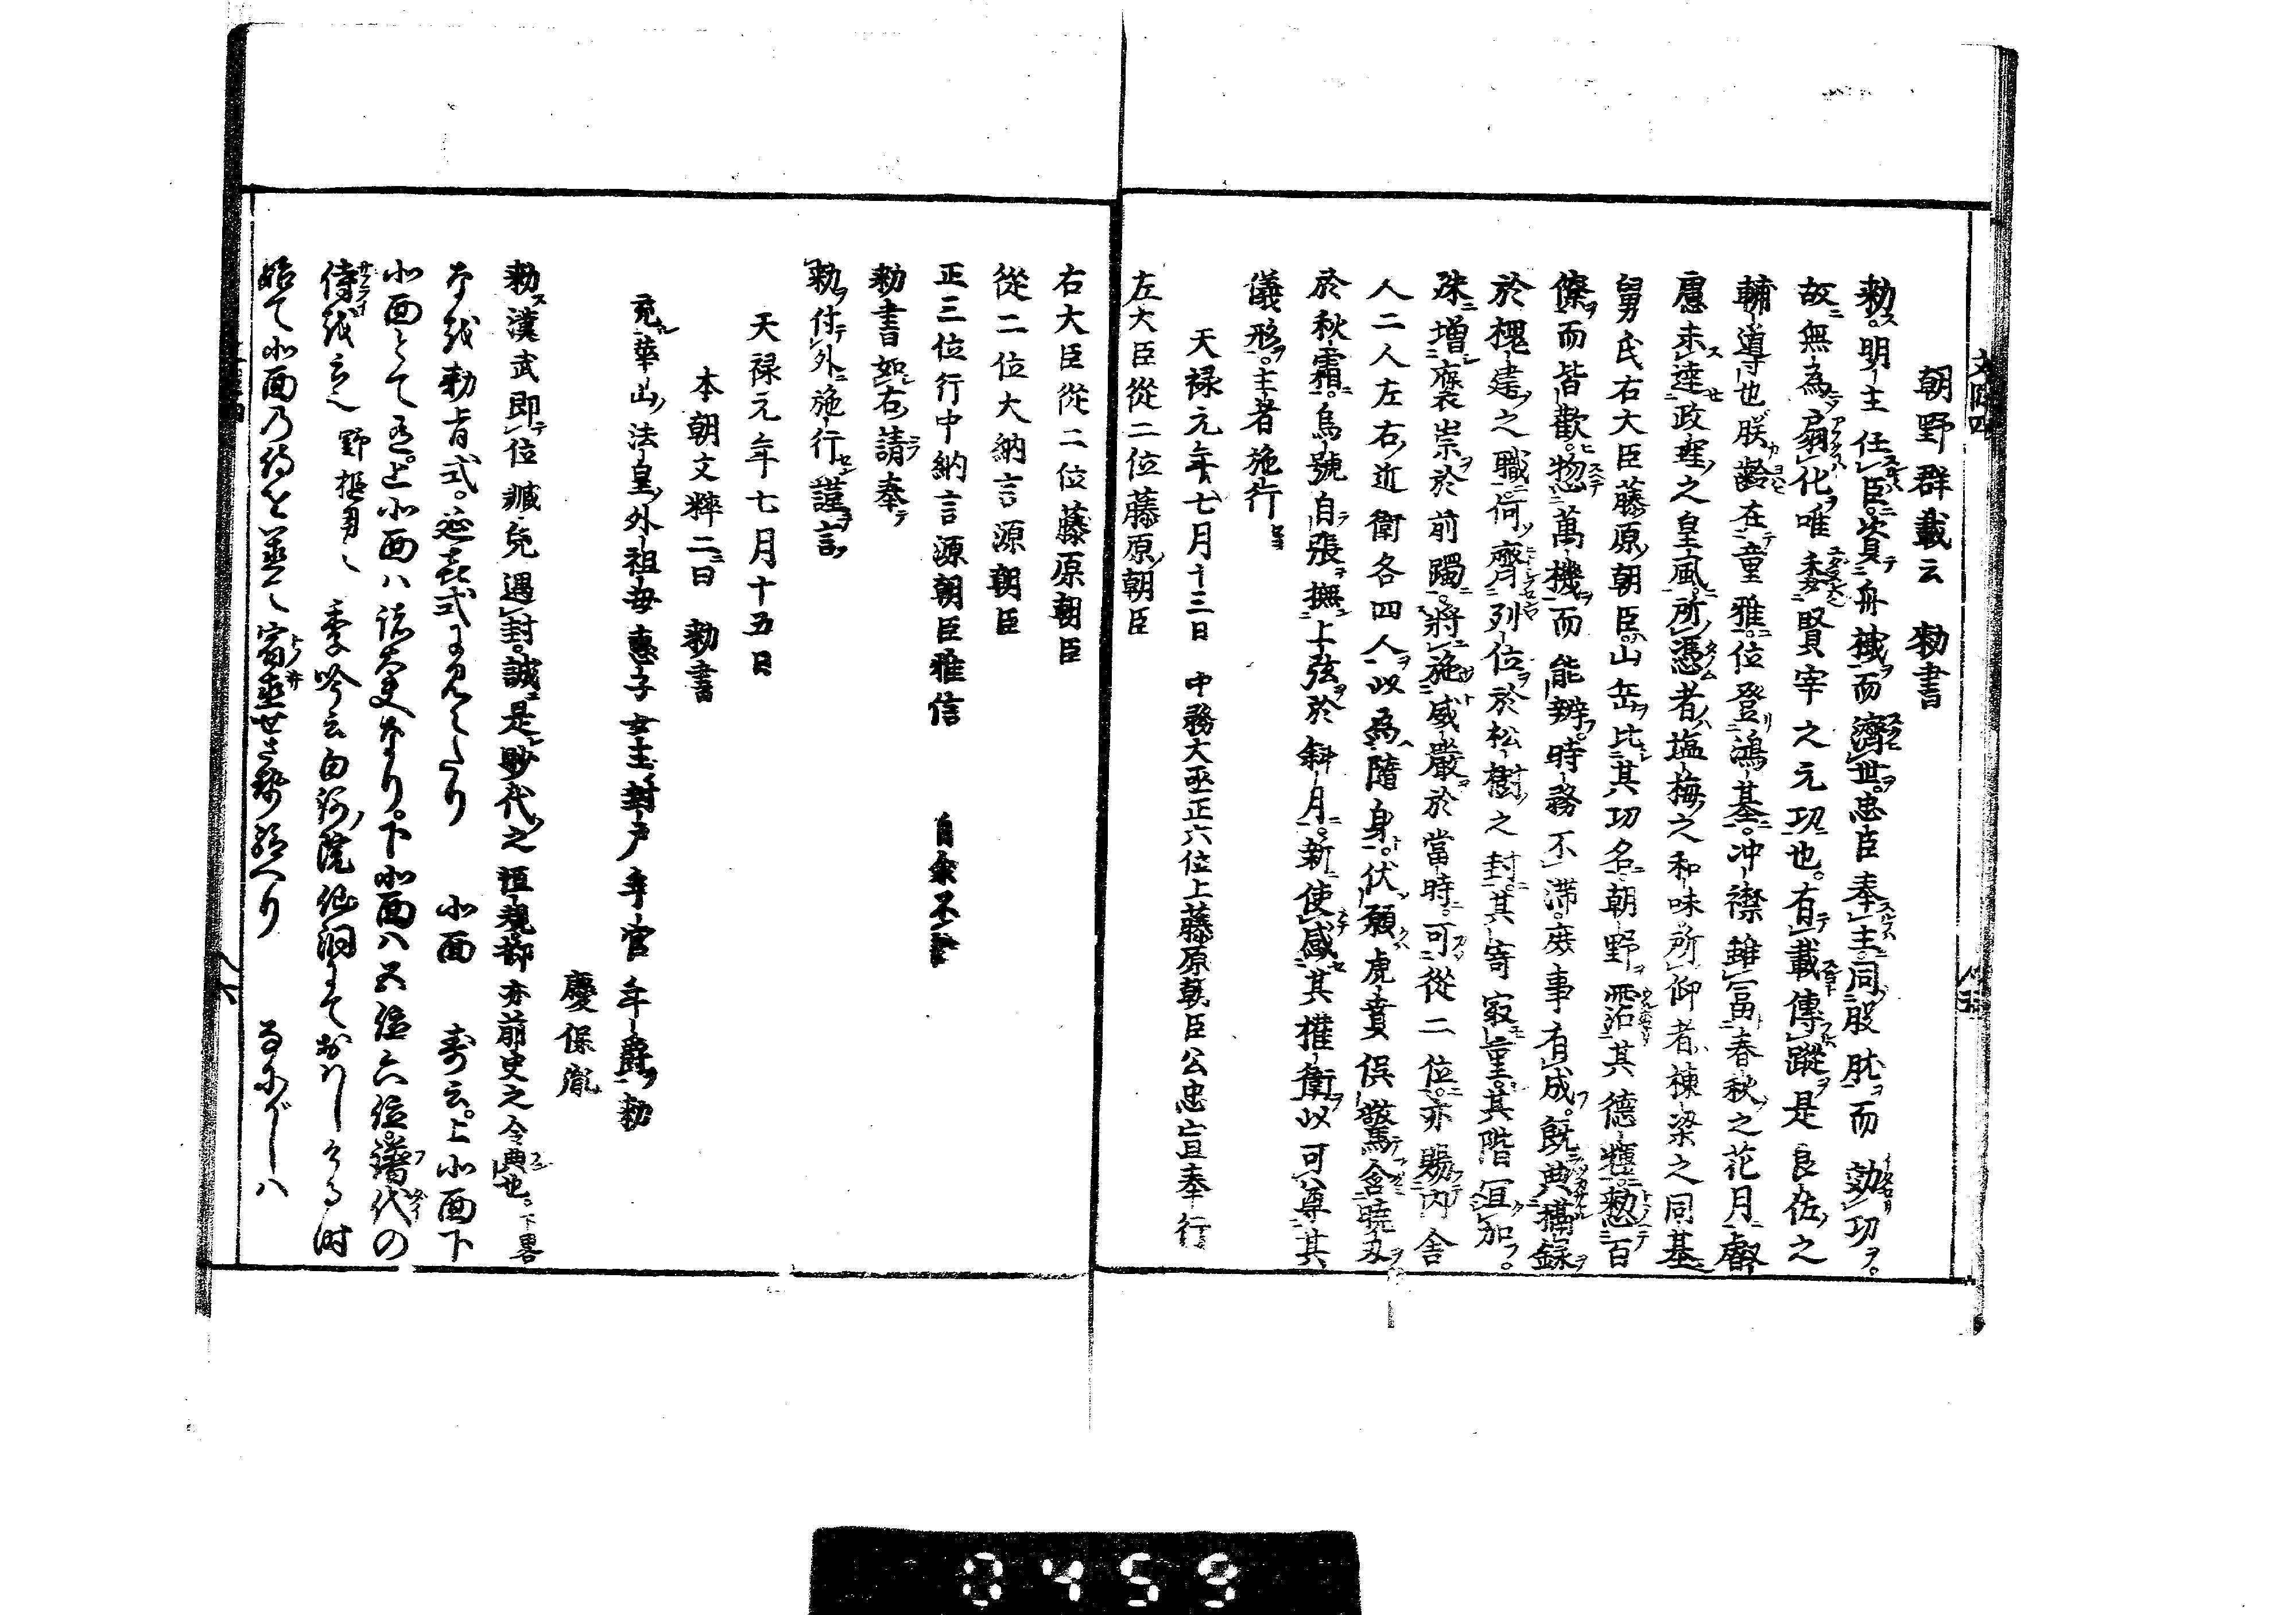 朝野群載云　勅書
勅。明主任臣。資舟檝而濟世。忠臣奉主。同股肱而効功。
故無為扇化。唯委賢宰之元功也。有載傳蹤。是良佐之
輔導也。朕齡在童雅。位登鴻基。冲襟雖富春秋之花月。叡
慮未達政理之皇風。所憑者塩梅之和味。所仰者棟梁之同基。
舅氏右大臣藤原朝臣。山岳比其功名。朝野霑其德。惣百
僚而皆歡。惣萬機而能辨。時務不滞。庶事有成。既典攝録
於槐建之職。何齊列位於松樹之封。其寄寂重。其階宜加。
殊増褒崇於前躅。將施威嚴於當時。可從二位。亦賜内舎
人二人左右近衛各四人。以為隨身。伏願虎賁俱驚含曉刃
於秋霜。烏號自張撫上弦於斜月。新使感其權衛以可尊其
儀形。主者施行
天禄元年七月十三日　中務大丞正六位上藤原朝臣公忠宣奉行
左大臣從二位藤原朝臣
右大臣從二位藤原朝臣
從二位大納言源朝臣
正三位行中納言源朝臣雅信　自余不
勅書如右請奉
勅付外施行謹言
天禄元年七月十五日
本朝文粹二曰　勅書
充華山法皇外祖母惠子女王封戸年官年爵勅
慶保胤
勅漢武即位臧兒遇封。誠是眇代之恒規。亦前史之令典也。下畧
な越勅旨式。延喜式に見えたり　北面　壽云。上北面下
北面とて有。上北面ハ諸大夫なり。下北面ハ五位六位。譜代の
侍越云　野槌同之　季吟云白河院仙洞にておハしける時
始て北面の侍を並て宿直せさせ給へり　なにがしハ